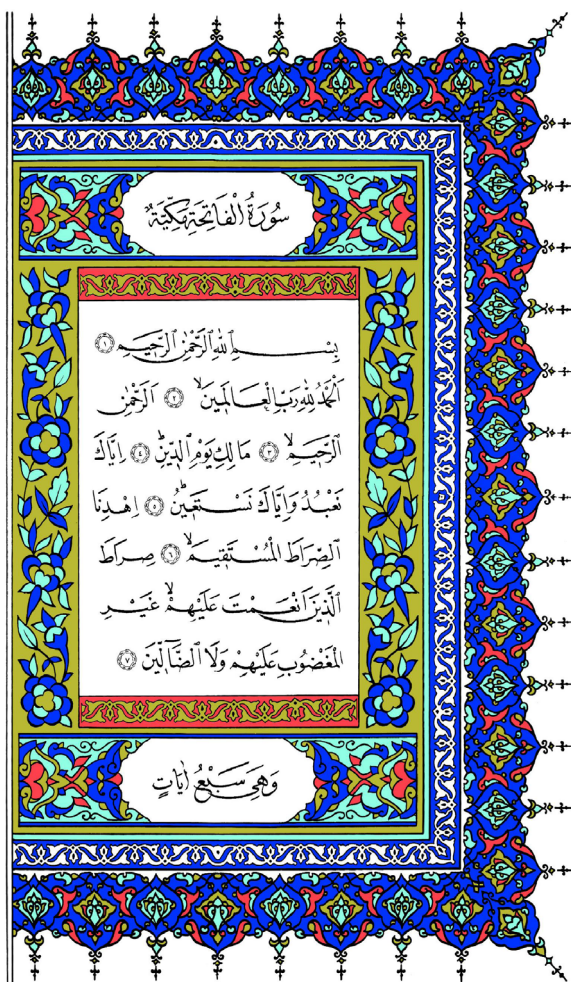 سُورَةُ الْفَاتِحَةِ مَكِّيَّةٌ
بِسْمِ اللّٰهِ الرَّحْمٰنِ الرَّحٖيمِ ﴿١﴾
اَلْحَمْدُ لِلّٰهِ رَبِّ الْعَالَمٖينَۙ ﴿٢﴾ اَلرَّحْمٰنِ
الرَّحٖيمِۙ ﴿٣﴾ مَالِكِ يَوْمِ الدّٖينِؕ ﴿٤﴾ اِيَّاكَ
نَعْبُدُ وَاِيَّاكَ نَسْتَعٖينُؕ ﴿٥﴾ اِهْدِنَا
الصِّرَاطَ الْمُسْتَقٖيمَۙ ﴿٦﴾ صِرَاطَ
الَّذٖينَ اَنْعَمْتَ عَلَيْهِمْۙ غَيْرِ
الْمَغْضُوبِ عَلَيْهِمْ وَلَا الضَّٓالّٖينَ ﴿٧﴾
وَهِيَ سَبْعُ اٰيَاتٍ